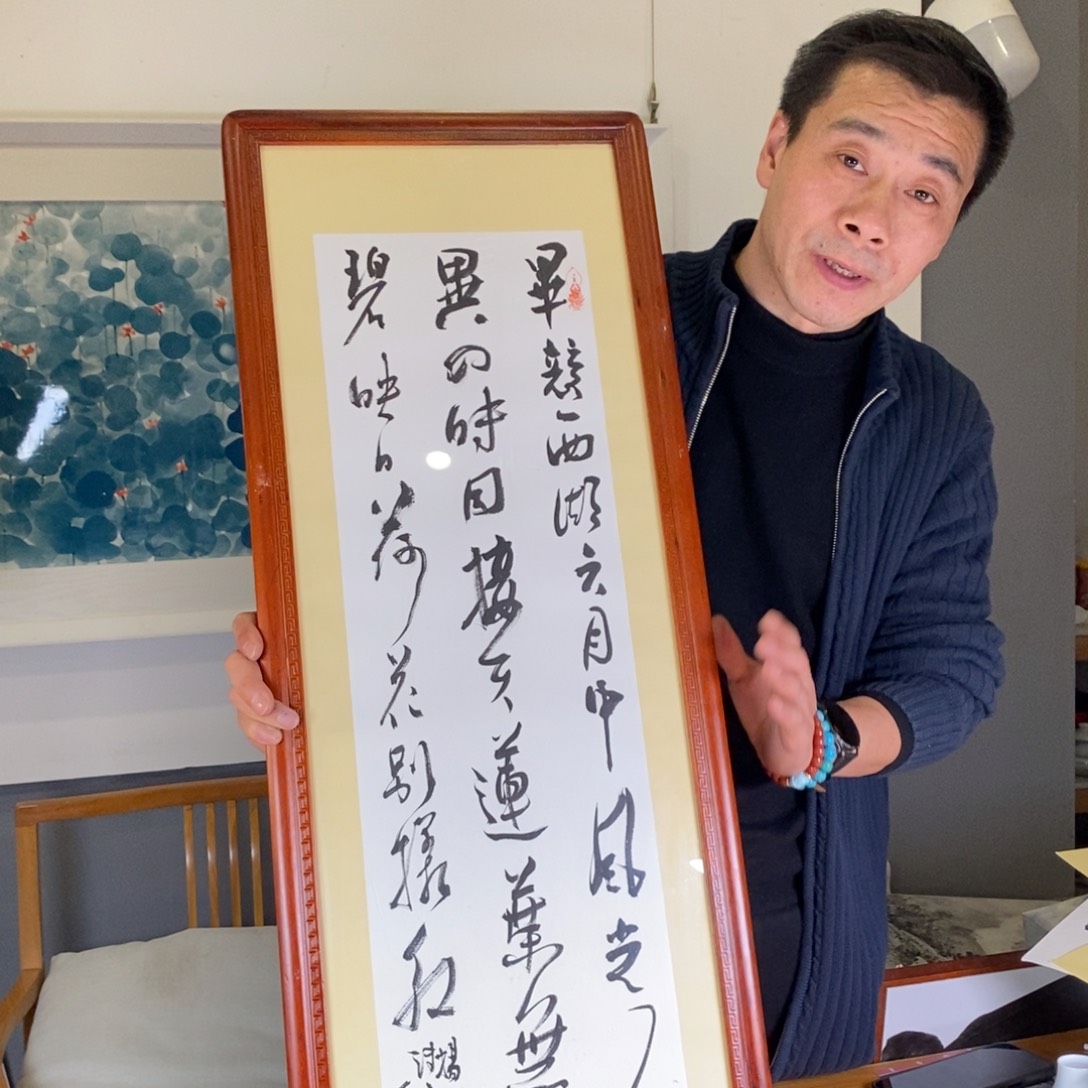 畢竟西湖六月中風光
與四時同接天蓮葉無
碧映日荷花別樣紅